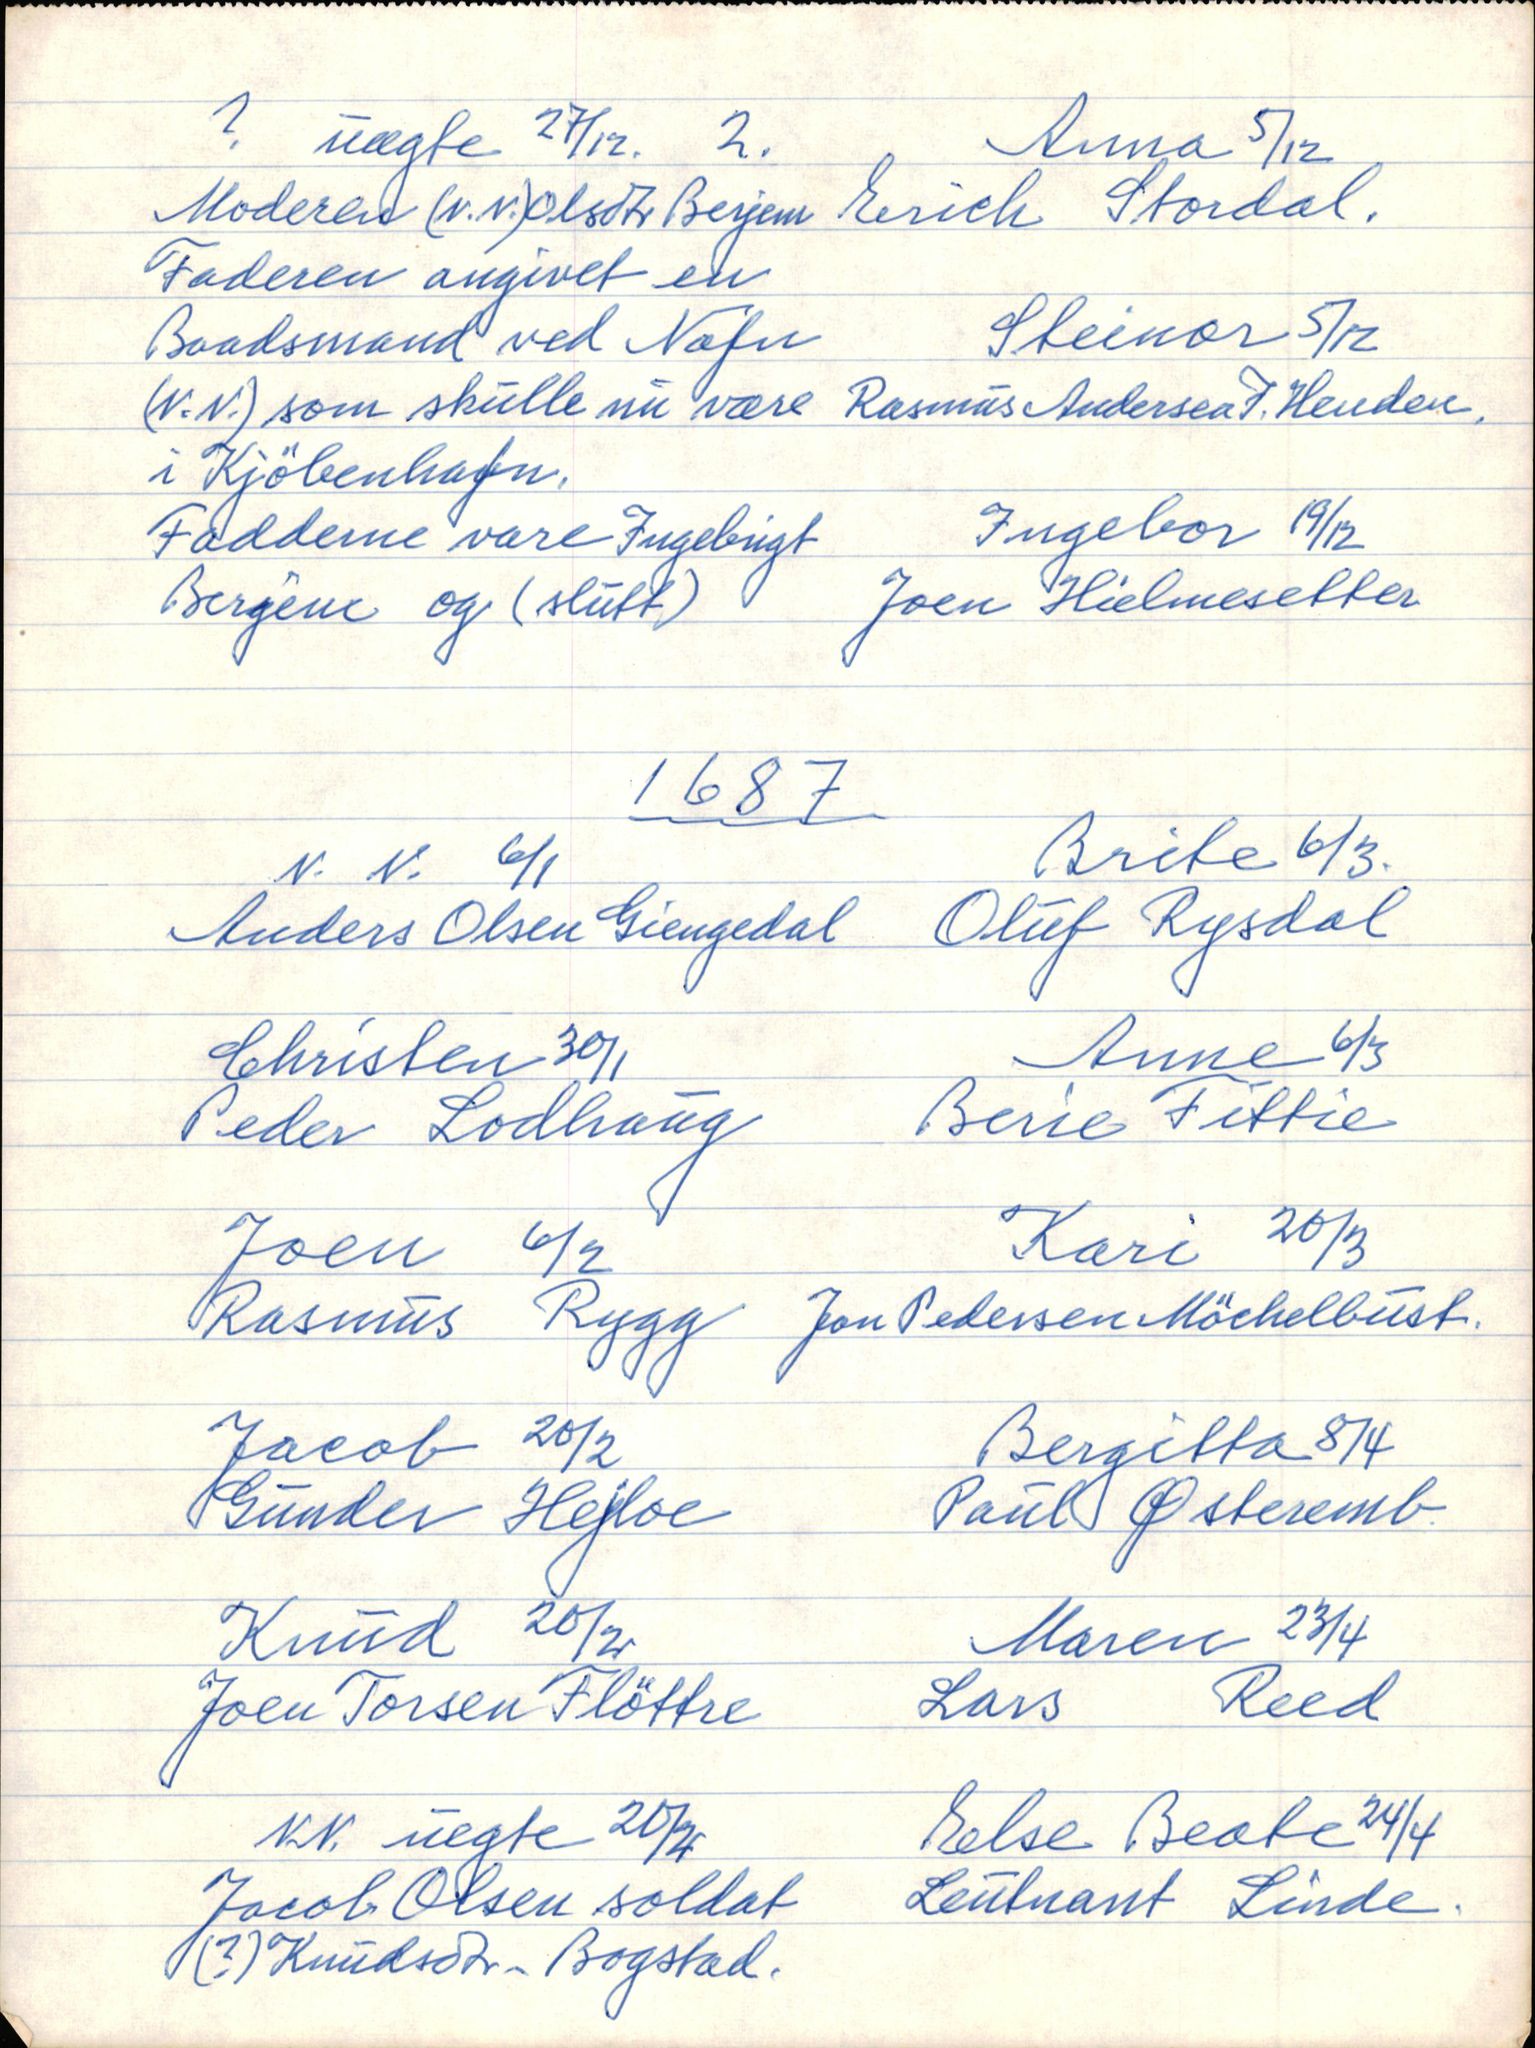 ? uægte 27/12. 2.
Moderen (N.N.) Olsdtr Berjem
Faderen angivet en
Baadsmand ved Nafn
(N.N.) som skulle nu være
i Kjöbenhafn.
Fadderne vare Ingebrigt
Bergem og (slutt)
Anna 5/12
Erich Stordal.
Steinor 5/12
Rasmus Andersen F. Henden.
Ingebor 19/12
Joen Hielmesetter
1687
N. N. 6/1
Anders Olsen Giengedal
Christen 30/1
Peder Lodhaug
Joen 6/2
Rasmus Rygg
Jacob 20/2
Gunder Hejloe
Knud 20/2
Joen Torsen Flöttre
N.N. uegte 20/2
Jacob Olsen soldat
(?) Knudsdtr - Bogstad.
Brite 6/3.
Oluf Rysdal
Anne 6/3
Berie Fittie
Kari 20/3
Jon Pedersen Möchelbust.
Bergitta 8/4
Paul Østeremb.
Maren 23/4
Lars Reed
Else Beate 24/4
Leutnant Linde.